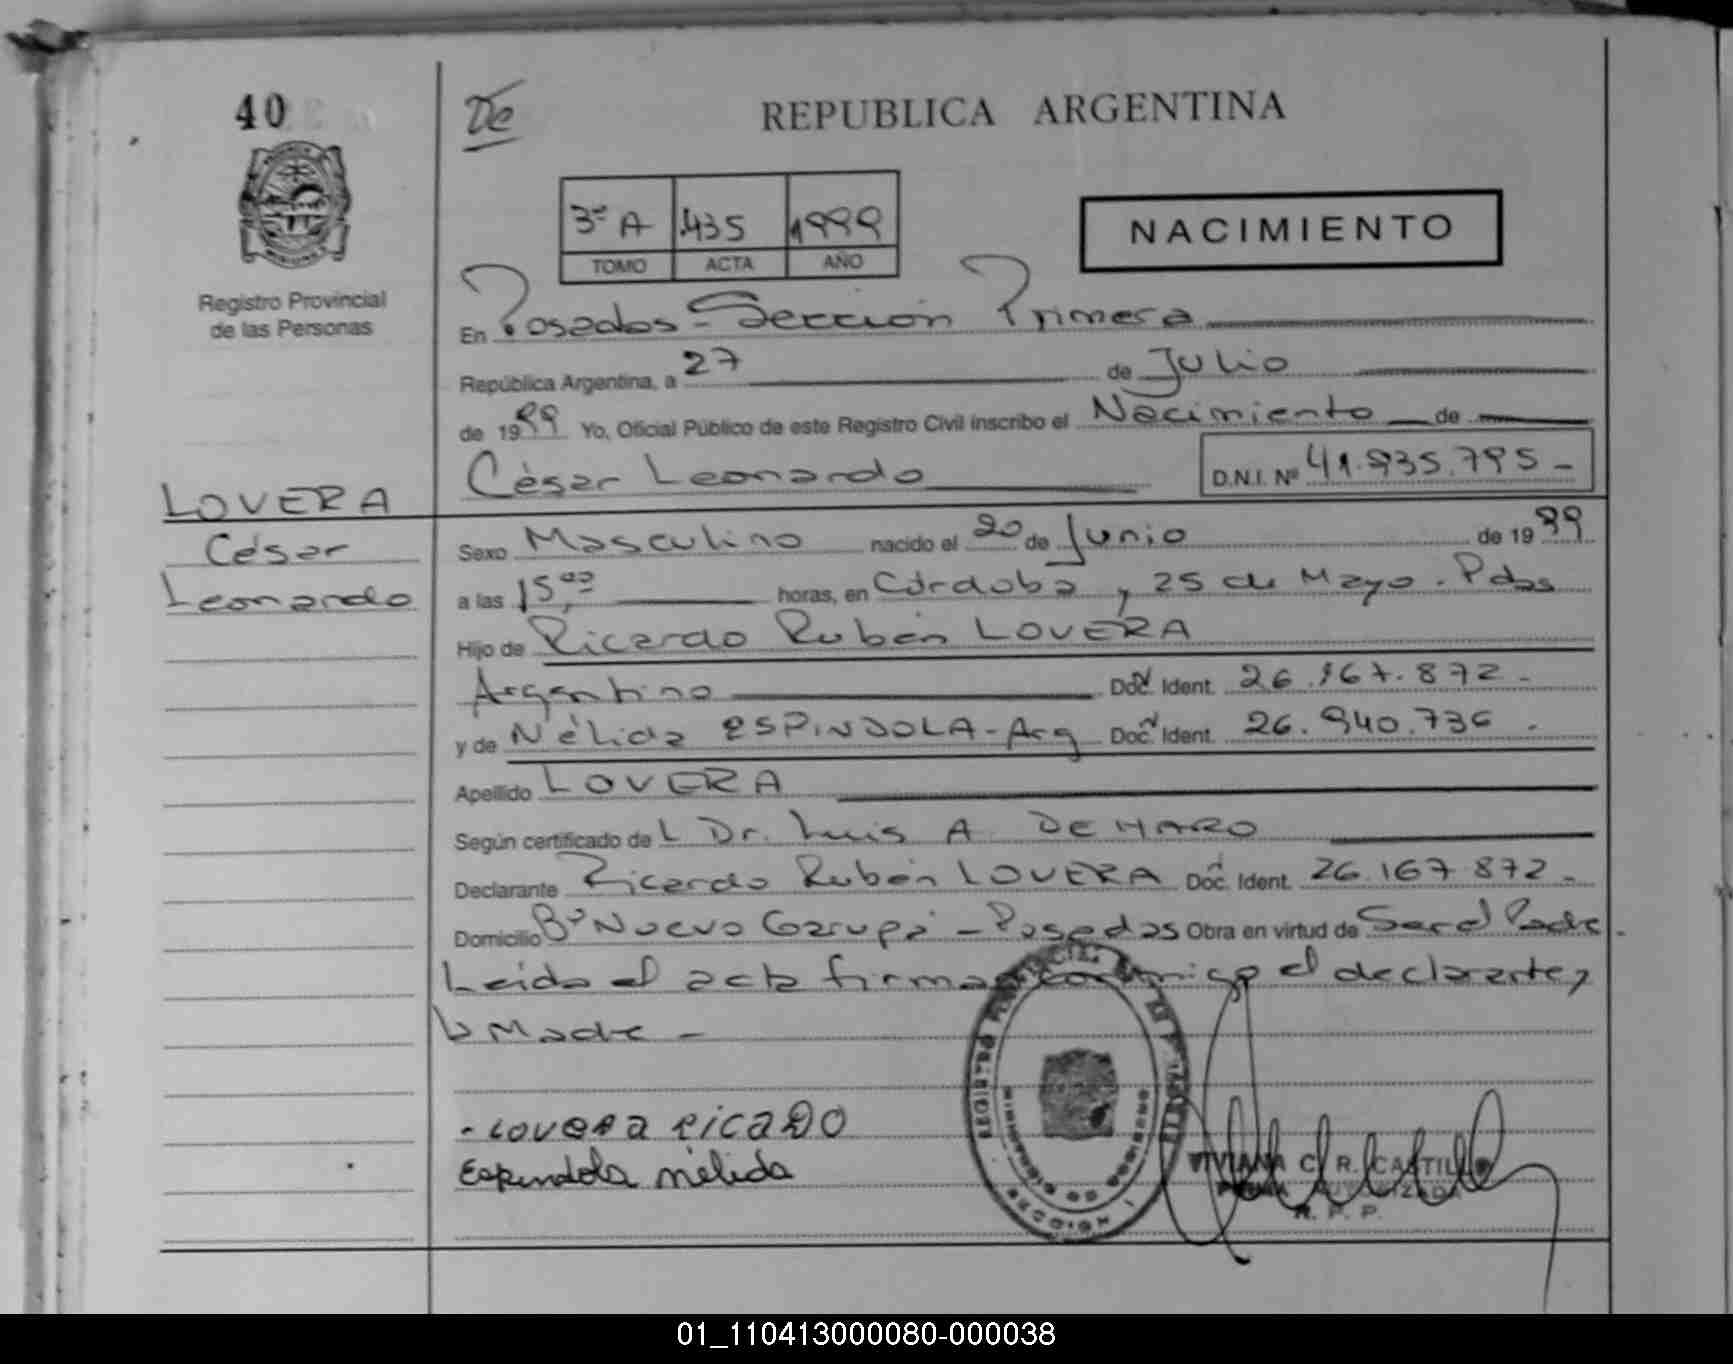 40
De
REPUBLICA ARGENTINA
3º A 435 1999
TOMO ACTA AÑO
NACIMIENTO
Registro Provincial
de las Personas
En Posadas - Sección Primera
República Argentina, a 27 de Julio
de 1999 Yo, Oficial Público de este Registro Civil inscribo el Nacimiento de
César Leonardo D.N.I. Nº 41.935.795 -
LOVERA
César
Leonardo
Sexo Masculino nacido el 20 de Junio de 1999
a las 15,00 horas, en Córdoba y 25 de Mayo. Pdas
Hijo de Ricardo Rubén LOVERA
Argentino Doc. Ident. 26.167.872 -
y de Nélida ESPINDOLA - Arg Doc. Ident. 26.940.736 .
Apellido LOVERA
Según certificado del Dr. Luis A. DE HARO
Declarante Ricardo Rubén LOVERA Doc. Ident. 26.167.872 -
Domicilio Bº Nuevo Garupá - Posadas Obra en virtud de Ser el Padre.
Leida el acta firman conmigo el declarante y
la Madre -
REGISTRO
SECCION 1
LOVERA RICADO
Espindola nélida
VIVIANA C. R. CASTILLO
FIRMA AUTORIZADA
R. P. P.
01_110413000080-000038